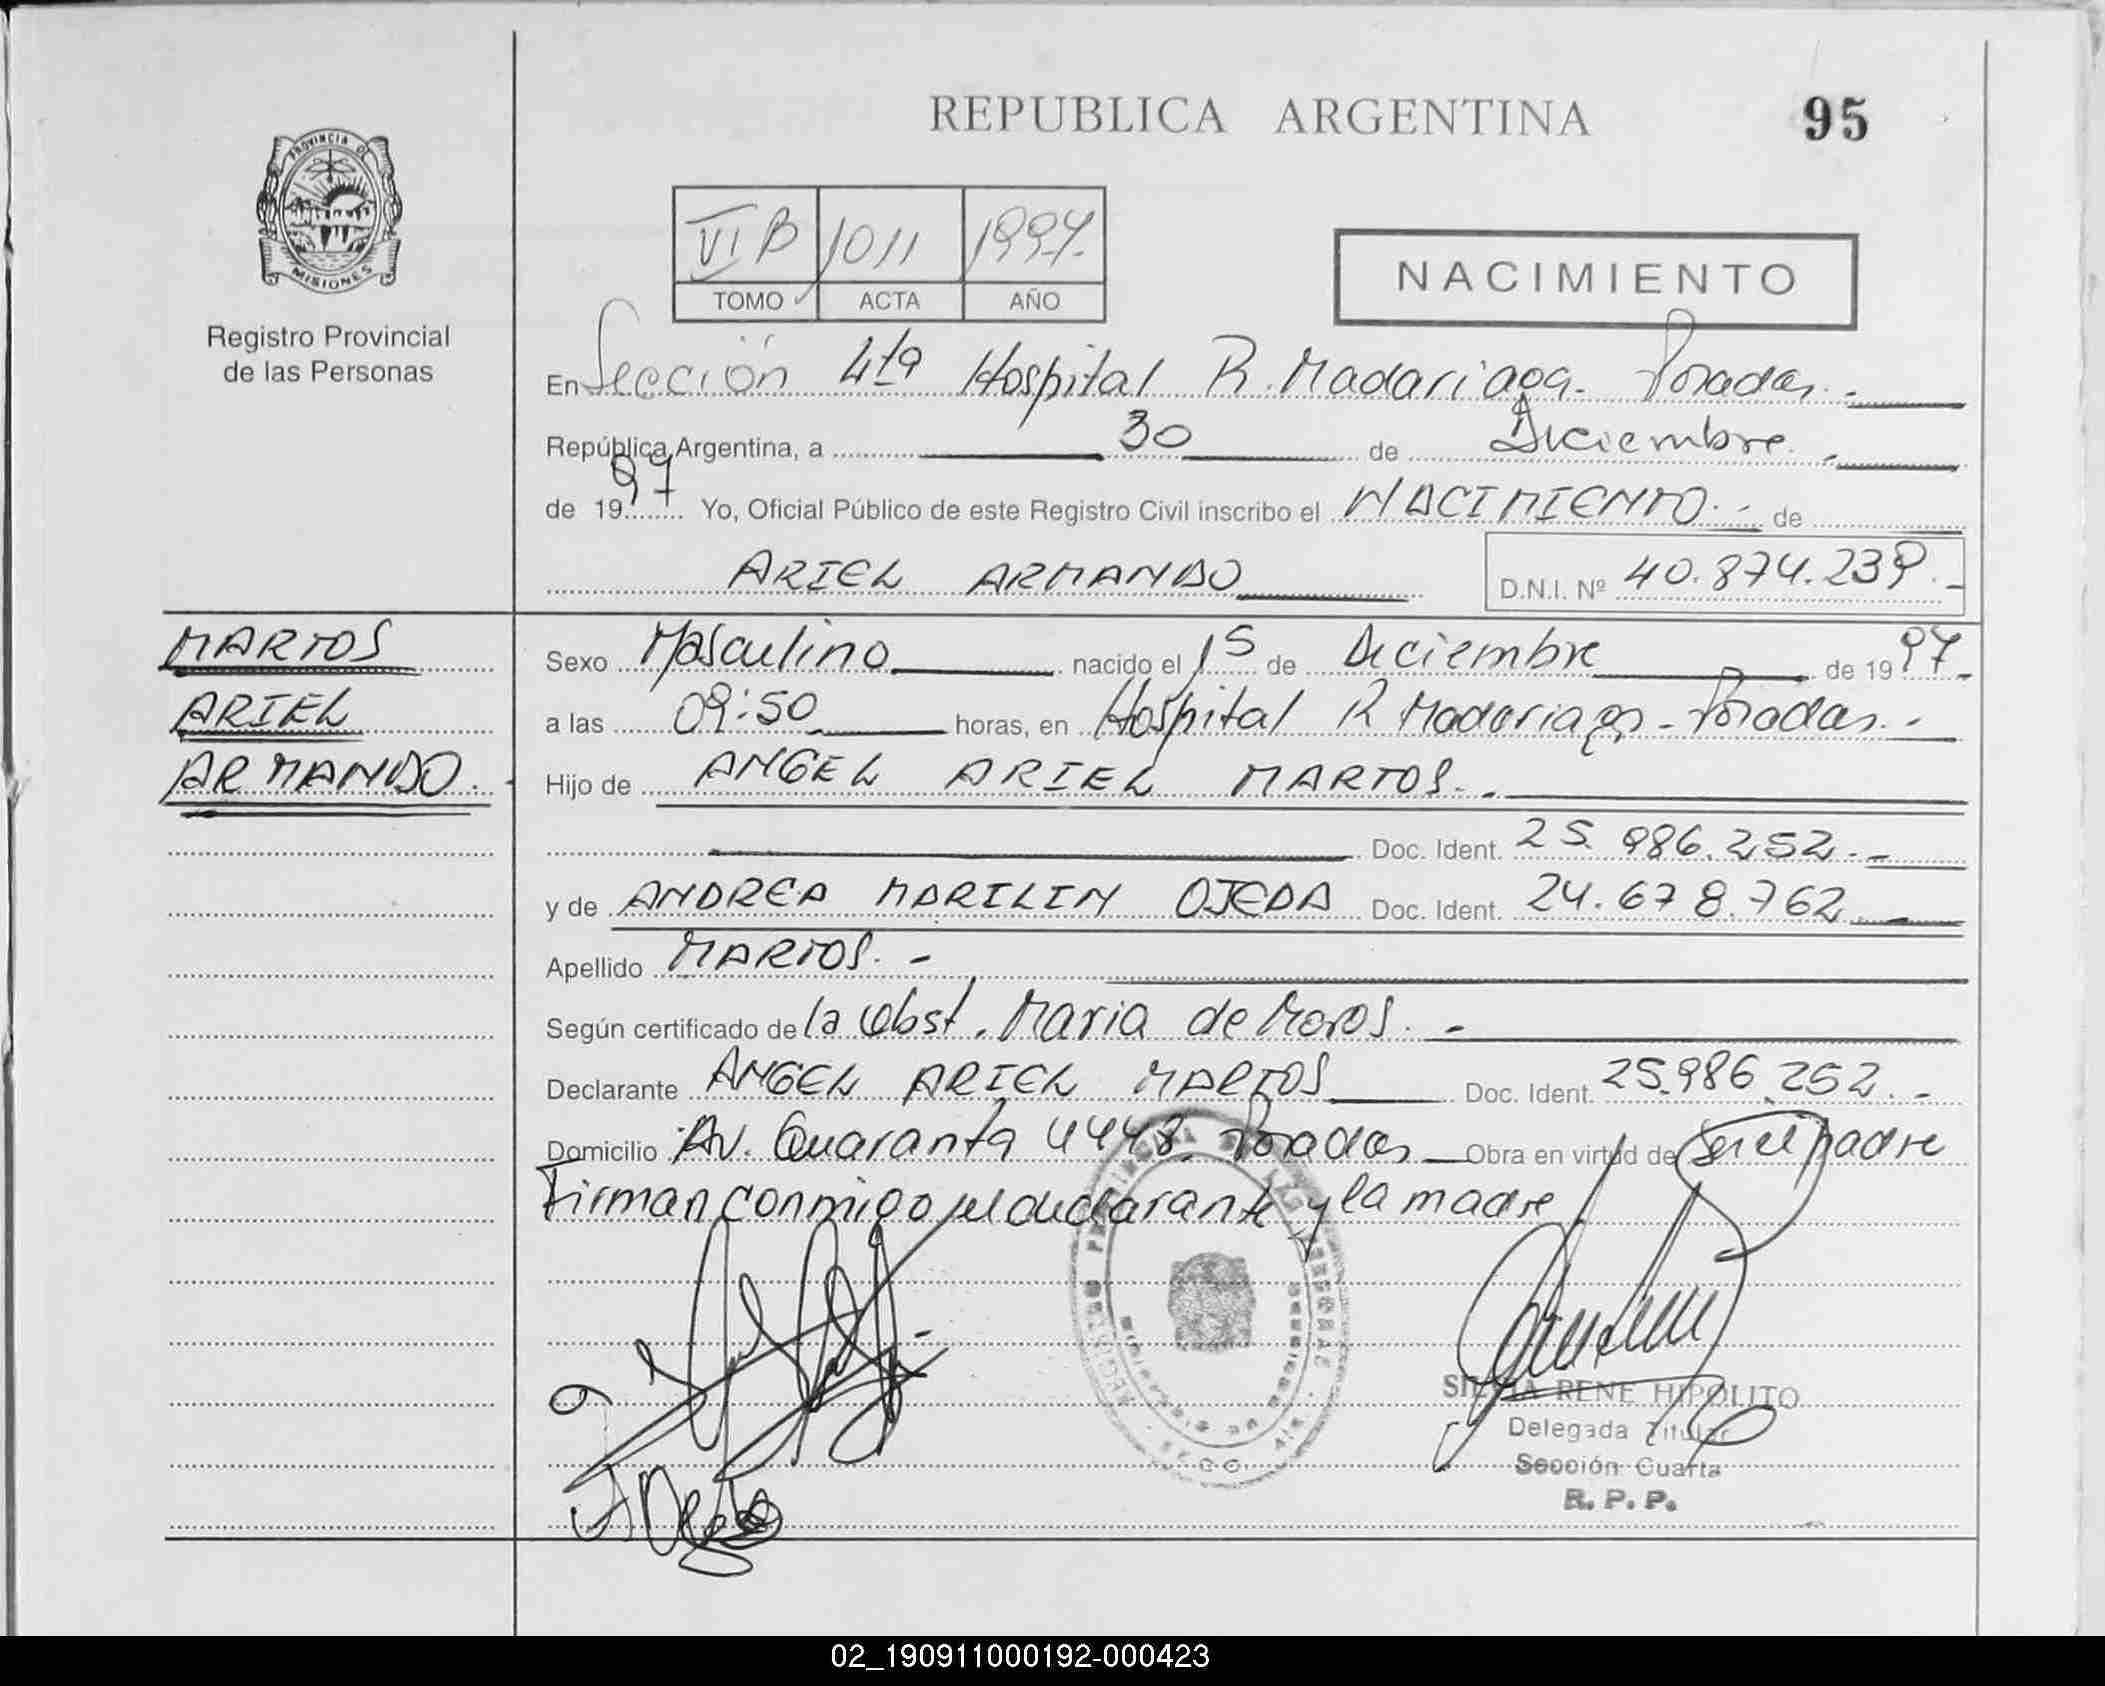 REPUBLICA ARGENTINA
95
PROVINCIA DE
MISIONES
Registro Provincial
de las Personas
VI B 1011 1997.
TOMO ACTA AÑO
NACIMIENTO
En Sección 4ta Hospital R. Madariaga. Posadas.-
República Argentina, a 30 de Diciembre.
de 1997 Yo, Oficial Público de este Registro Civil inscribo el NACIMIENTO.- de
ARIEL ARMANDO D.N.I. Nº 40.874.239.-
MARTOS
ARIEL
ARMANDO.-
Sexo Masculino nacido el 15 de Diciembre de 1997.-
a las 09:50 horas, en Hospital R Madariaga - Posadas.-
Hijo de ANGEL ARIEL MARTOS.-
Doc. Ident. 25.986.252.-
y de ANDREA MARILIN OJEDA Doc. Ident. 24.678.762
Apellido MARTOS.-
Según certificado de la Obst. Maria de Moros.-
Declarante ANGEL ARIEL MARTOS Doc. Ident. 25.986.252.-
Domicilio Av. Quaranta 4448. Posadas Obra en virtud de Ser el padre
Firman conmigo el declarante y la madre
SILVIA RENE HIPOLITO
Delegada Titular
Sección Cuarta
R. P. P.
02_190911000192-000423